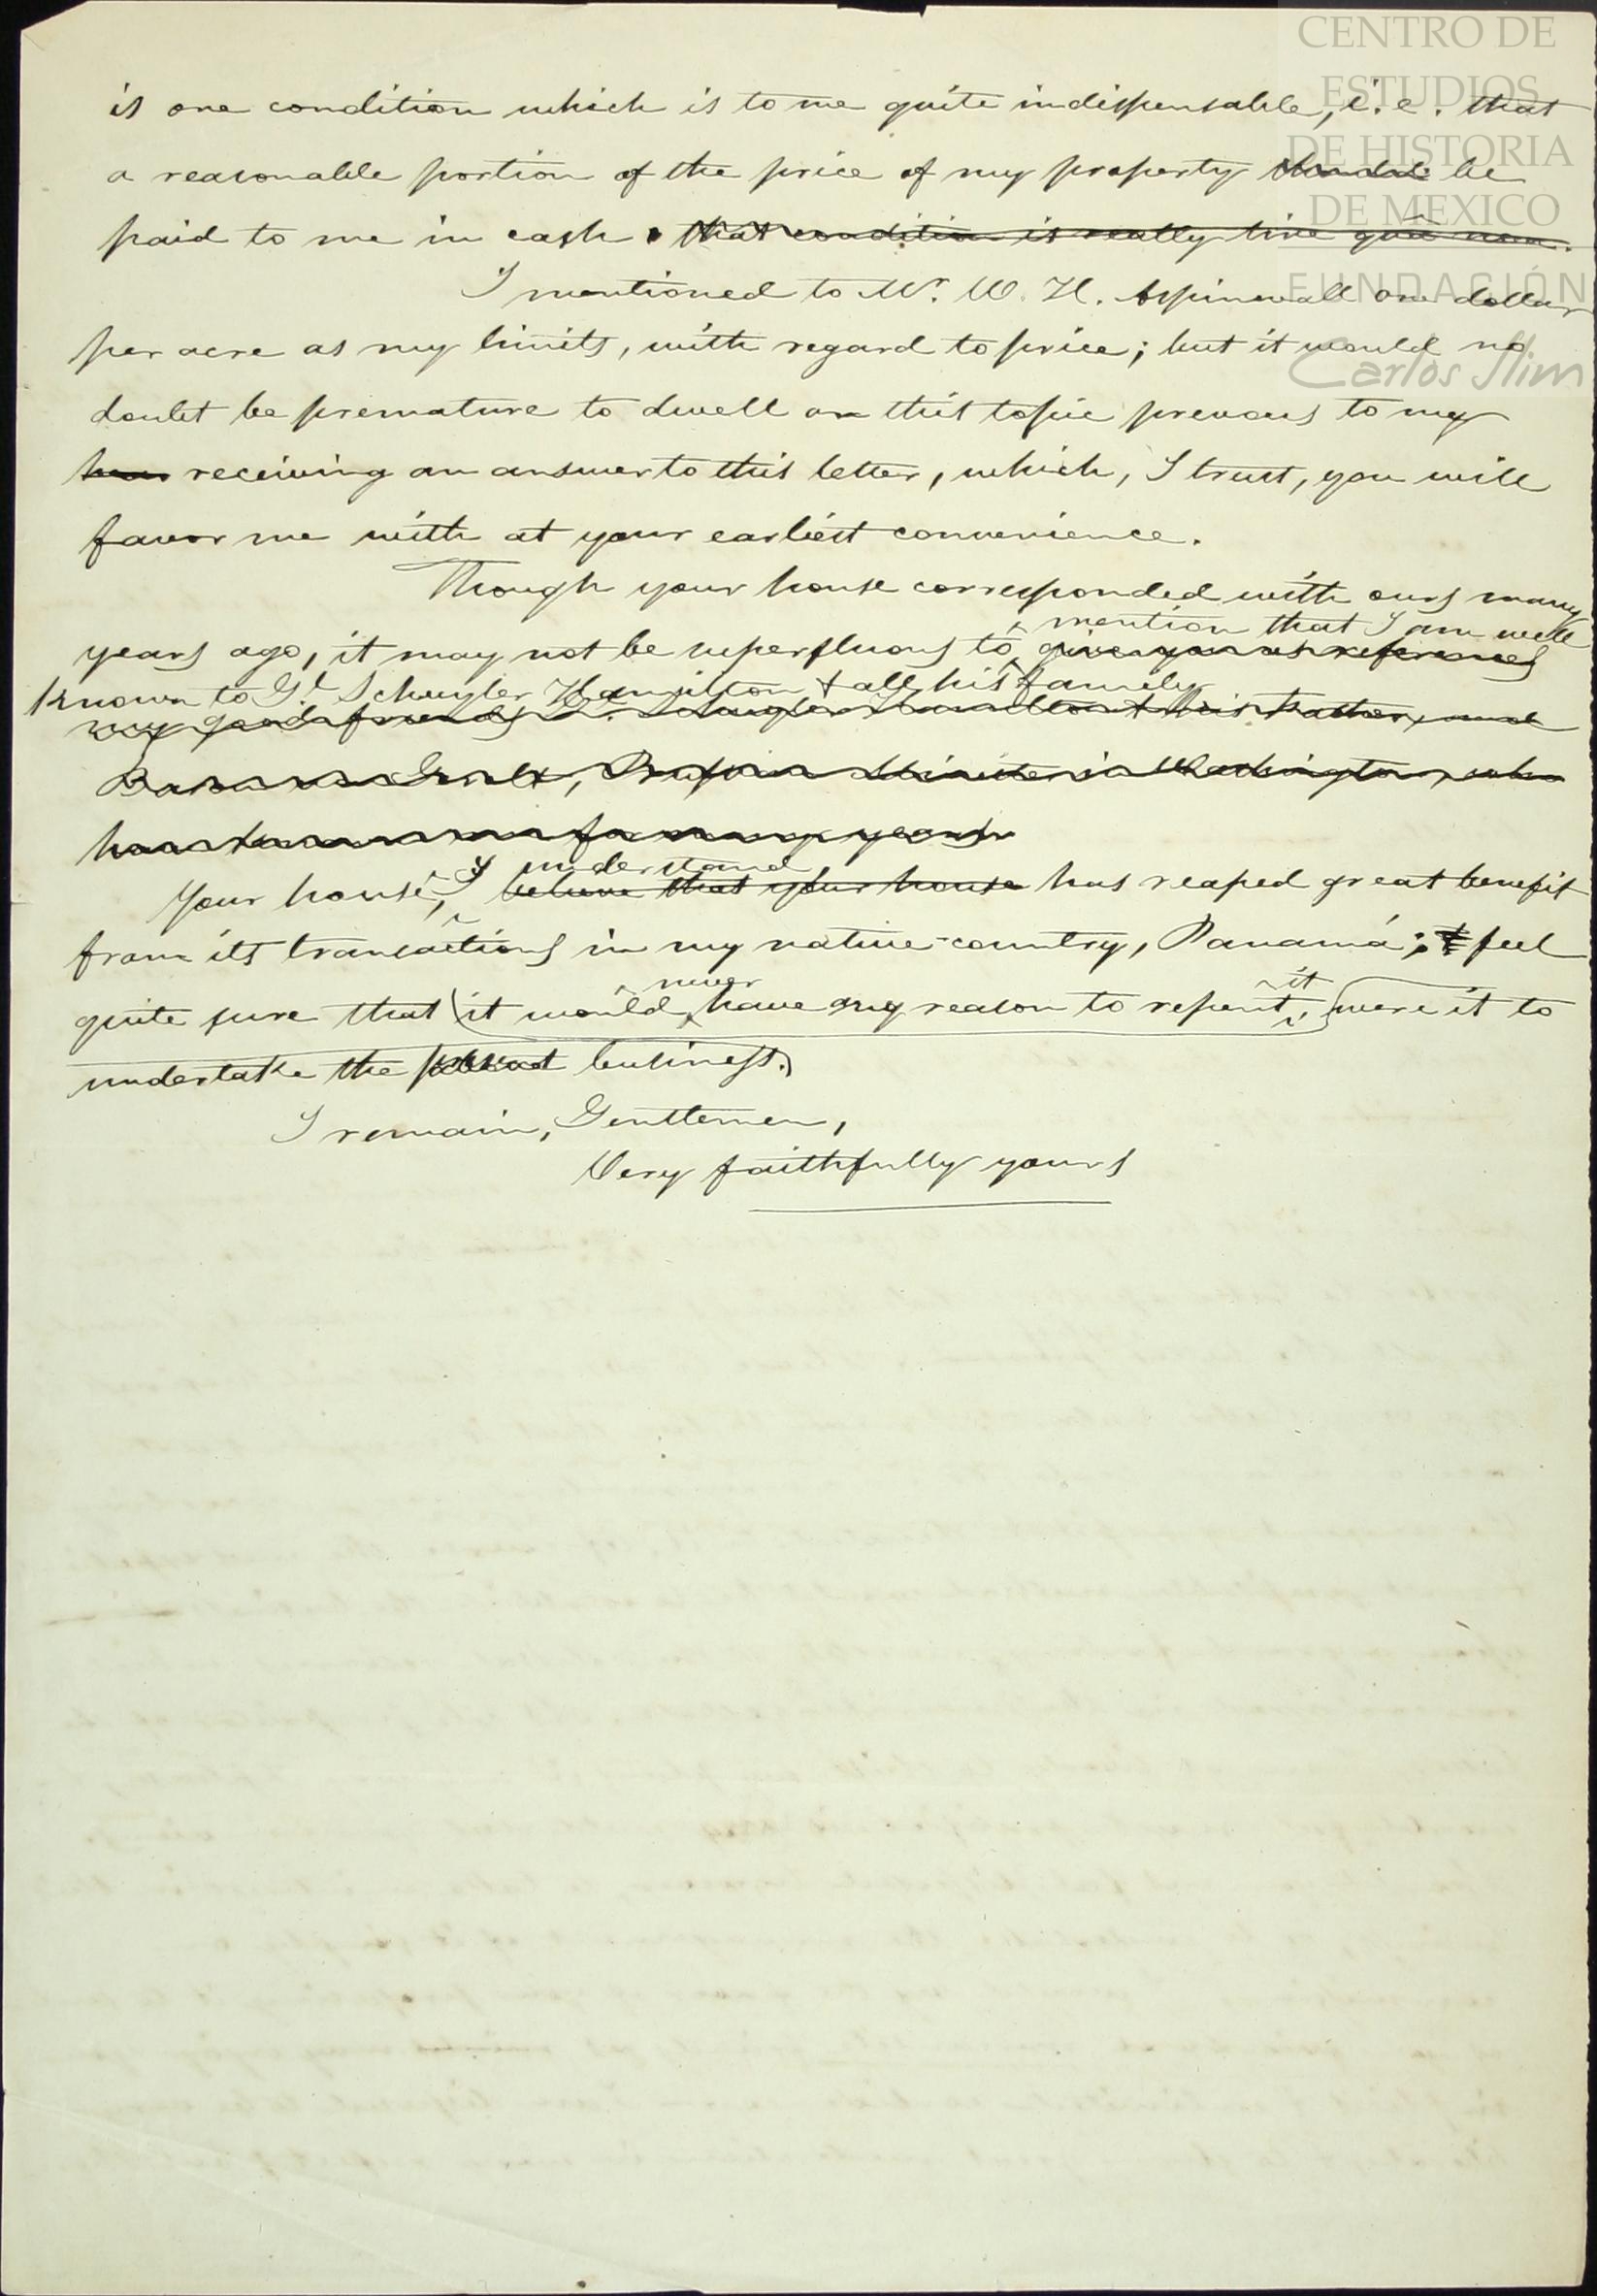 CENTRO DE
ESTUDIOS
DE HISTORIA
DE MEXICO
FUNDACIÓN
Carlos Slim
is one condition which is to me quite indispensable, i. e. that
a reasonable portion of the price of my property should be
paid to me in cash. that condition is really sine quâ non.
I mentioned to Mr. W. H. Aspinwall one dollar
per acre as my limits, with regard to price; but it would no
doubt be premature to dwell on this topic prevous to my
receiving an answer to this letter, which, I trust, you will
favor me with at your earliest convenience.
Though your house corresponded with ours many
mention that I am well
years ago, it may not be superfluous to give you as references
known to Gl. Schuyler Hamilton & all his family
my good friends Gl. Schuyler Hamilton & his Father, and
Baron Prussian Minister in Washington, who
has known me for many years
I understand
Your house, believe that your house has reaped great benefit
from its transactions in my native country, Panamá; I feel
never it
quite sure that it would have any reason to repent, were it to
undertake the present business.
I remain, Gentlemen,
Very faithfully yours